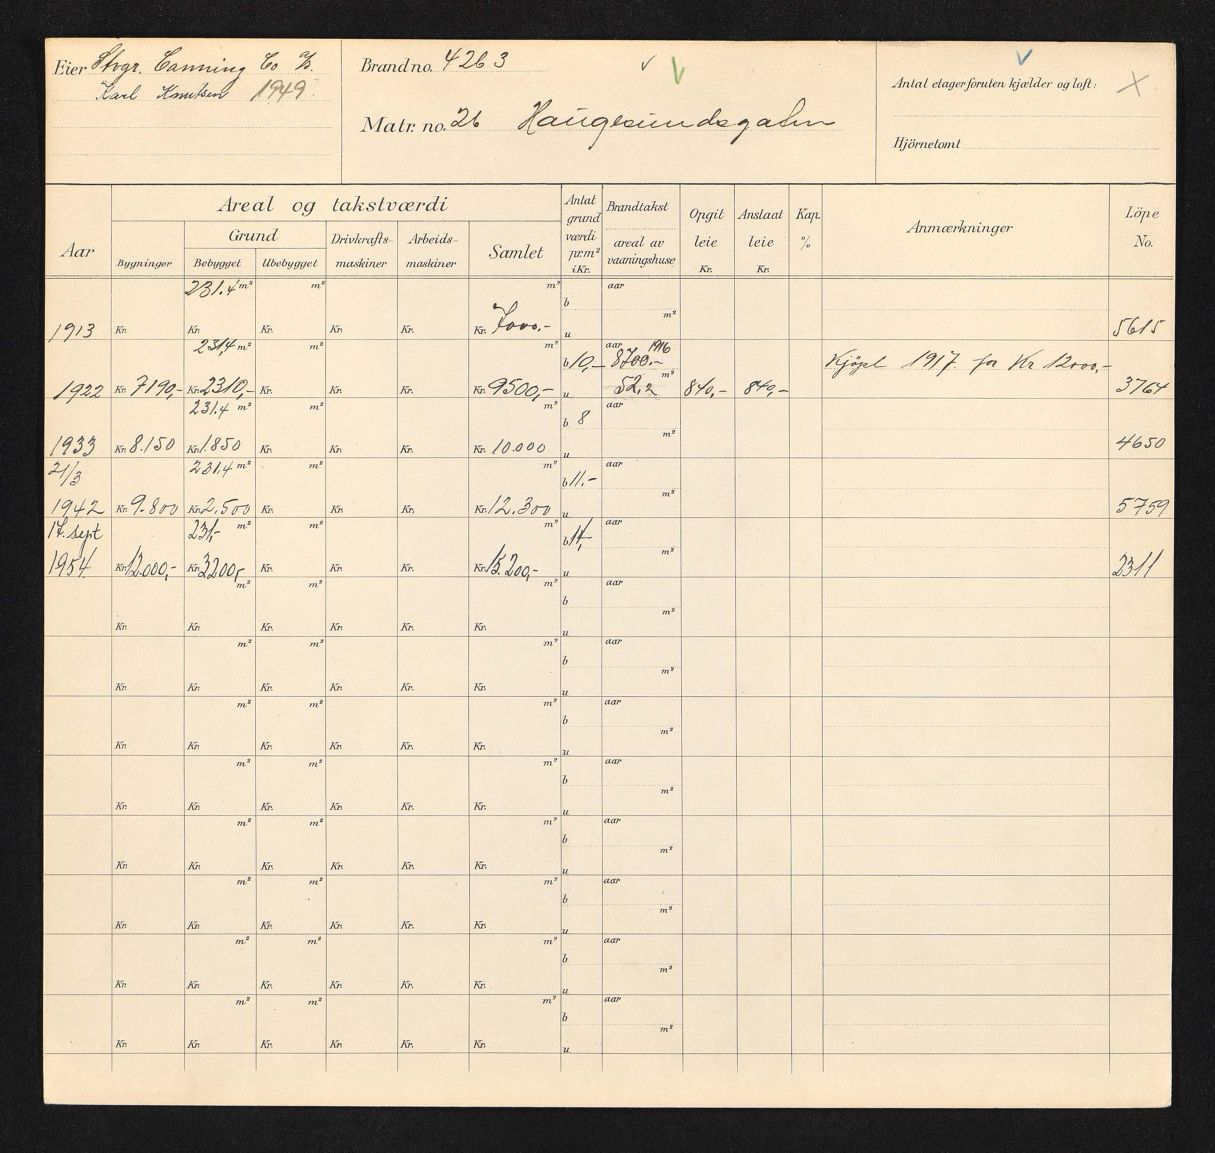 Eier Stvgr. Canning Co A/S.
Karl Knutsen 1949
Brand no. 4263
Matr. no. 26 Haugesundsgaten
Antal etager foruten kjælder og loft:
Hjörnetomt
Aar
Areal og takstværdi
Bygninger
Grund
Bebygget Ubebygget
Drivkrafts-maskiner
Arbeids-maskiner
Samlet
Antat grund værdi pr. m² i Kr.
Brandtakst
areal av vaaningshuse
Opgit leie Kr.
Anslaat leie Kr.
Kap. %
Anmærkninger
Löpe No.
231.4 m² m² m² b aar
1913 Kr. Kr. Kr. Kr. Kr. Kr. 7000.- u m² 5615
231,4 m² m² m² b 10,- aar 1916 8700.- Kjöpt 1917. for Kr 12000,-
1922 Kr. 7190,- Kr. 2310,- Kr. Kr. Kr. Kr. 9500,- u 52,2 m² 840,- 840,- 3764
231.4 m² m² m² b 8 aar
1933 Kr. 8.150 Kr. 1.850 Kr. Kr. Kr. Kr. 10.000 u m² 4650
21/3 231.4 m² m² m² b 11.- aar
1942 Kr. 9.800 Kr. 2.500 Kr. Kr. Kr. Kr. 12.300 u m² 5759
17. sept 231,- m² m² m² b 14,- aar
1954. Kr. 12.000,- Kr. 3200,- Kr. Kr. Kr. Kr. 15.200,- u m² 2311
m² m² m² b aar
Kr. Kr. Kr. Kr. Kr. Kr. u m²
m² m² m² b aar
Kr. Kr. Kr. Kr. Kr. Kr. u m²
m² m² m² b aar
Kr. Kr. Kr. Kr. Kr. Kr. u m²
m² m² m² b aar
Kr. Kr. Kr. Kr. Kr. Kr. u m²
m² m² m² b aar
Kr. Kr. Kr. Kr. Kr. Kr. u m²
m² m² m² b aar
Kr. Kr. Kr. Kr. Kr. Kr. u m²
m² m² m² b aar
Kr. Kr. Kr. Kr. Kr. Kr. u m²
m² m² m² b aar
Kr. Kr. Kr. Kr. Kr. Kr. u m²